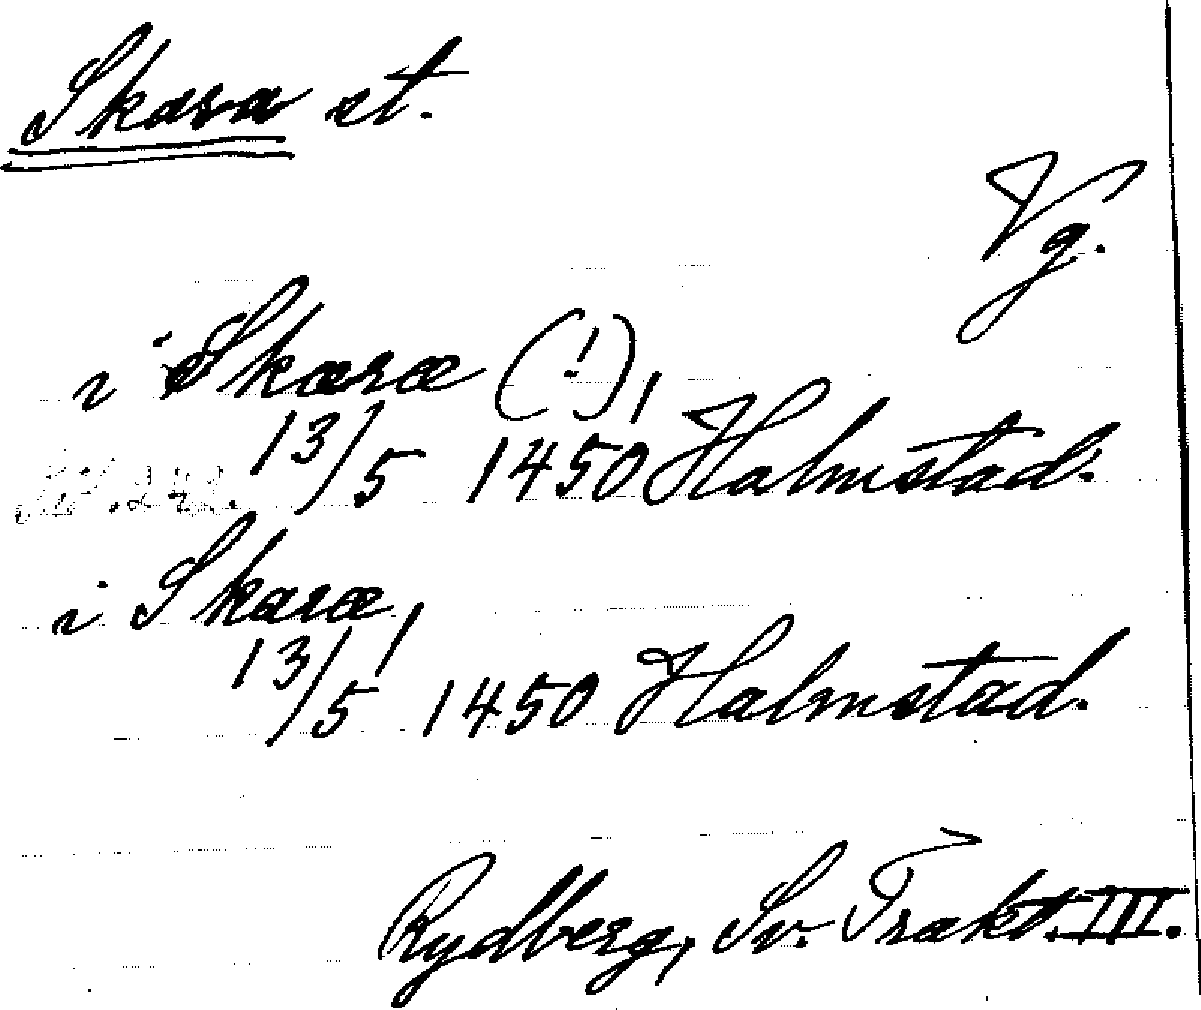 Skara st.
Vg.
i Skæræ (!),
13/5 1450 Halmstad.
i Skaræ,
13/5 1450 Halmstad.
Rydberg, Sv. Trakt. III.